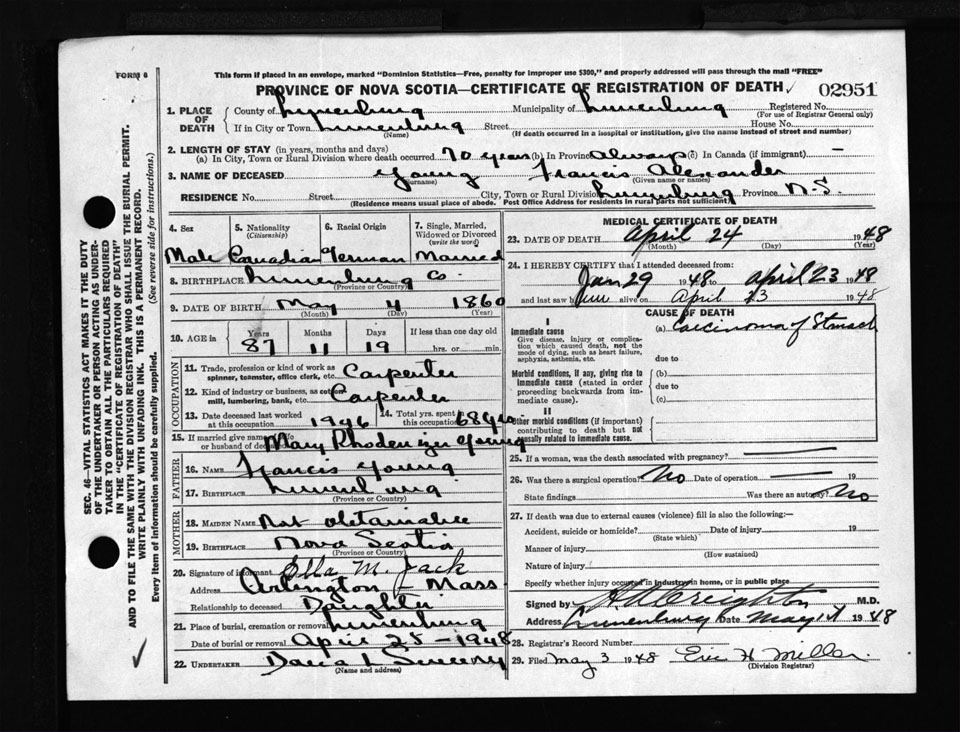 FORM 6
This form if placed in an envelope, marked "Dominion Statistics—Free, penalty for improper use $300," and properly addressed will pass through the mail "FREE"
PROVINCE OF NOVA SCOTIA—CERTIFICATE OF REGISTRATION OF DEATH ✓ 02951
1. PLACE OF DEATH
County of Lunenburg Municipality of Lunenburg Registered No.
(For use of Registrar General only)
If in City or Town Lunenburg Street House No.
(Name) (If death occurred in a hospital or institution, give the name instead of street and number)
2. LENGTH OF STAY (in years, months and days)
(a) In City, Town or Rural Division where death occurred 70 years (b) In Province Always (c) In Canada (if immigrant) —
3. NAME OF DECEASED Young Francis Alexander
(Surname) (Given name or names)
RESIDENCE No. Street City, Town or Rural Division Lunenburg Province N.S.
(Residence means usual place of abode. Post Office Address for residents in rural parts not sufficient)
4. Sex 5. Nationality (Citizenship) 6. Racial Origin 7. Single, Married, Widowed or Divorced (write the word)
Male Canadian German Married
8. BIRTHPLACE Lunenburg Co.
(Province or Country)
9. DATE OF BIRTH May 4 1860
(Month) (Day) (Year)
10. AGE in Years Months Days If less than one day old
87 11 19 hrs. or min.
OCCUPATION
11. Trade, profession or kind of work as spinner, teamster, office clerk, etc. Carpenter
12. Kind of industry or business, as cotton mill, lumbering, bank, etc. Carpenter
13. Date deceased last worked at this occupation 1946 14. Total yrs. spent in this occupation 68 yrs.
15. If married give name of wife or husband of deceased Mary Rhodenizer Young
FATHER
16. NAME Francis Young
17. BIRTHPLACE Lunenburg
(Province or Country)
MOTHER
18. MAIDEN NAME Not obtainable
19. BIRTHPLACE Nova Scotia
(Province or Country)
20. Signature of informant Ella M. Jack
Address Arlington - Mass.
Relationship to deceased Daughter
21. Place of burial, cremation or removal Lunenburg
Date of burial or removal April 25 - 1948
22. UNDERTAKER
(Name and address)
MEDICAL CERTIFICATE OF DEATH
23. DATE OF DEATH April 24 1948
(Month) (Day) (Year)
24. I HEREBY CERTIFY that I attended deceased from:
Jan 29 1948 to April 23 1948
and last saw him alive on April 23 1948
CAUSE OF DEATH
I
Immediate cause (a) Carcinoma of Stomach
Give disease, injury or complication which caused death, not the mode of dying, such as heart failure, asphyxia, asthenia, etc.
due to
Morbid conditions, if any, giving rise to immediate cause (stated in order proceeding backwards from immediate cause).
(b)
due to
(c)
II
Other morbid conditions (if important) contributing to death but not causally related to immediate cause.
25. If a woman, was the death associated with pregnancy? —
26. Was there a surgical operation? No Date of operation — 19
State findings Was there an autopsy? No
27. If death was due to external causes (violence) fill in also the following:—
Accident, suicide or homicide? Date of injury 19
(State which)
Manner of injury
(How sustained)
Nature of injury
Specify whether injury occurred in industry, in home, or in public place
Signed by Creighton M.D.
Address Lunenburg Date May 1st 1948
28. Registrar's Record Number
29. Filed May 3 1948 Eric H Miller
(Division Registrar)
SEC. 46—VITAL STATISTICS ACT MAKES IT THE DUTY
OF THE UNDERTAKER OR PERSON ACTING AS UNDERTAKER
TO OBTAIN ALL THE PARTICULARS REQUIRED
IN THE "CERTIFICATE OF REGISTRATION OF DEATH"
AND TO FILE THE SAME WITH THE DIVISION REGISTRAR WHO SHALL ISSUE THE BURIAL PERMIT.
WRITE PLAINLY WITH UNFADING INK. THIS IS A PERMANENT RECORD.
Every item of information should be carefully supplied. (See reverse side for instructions.)